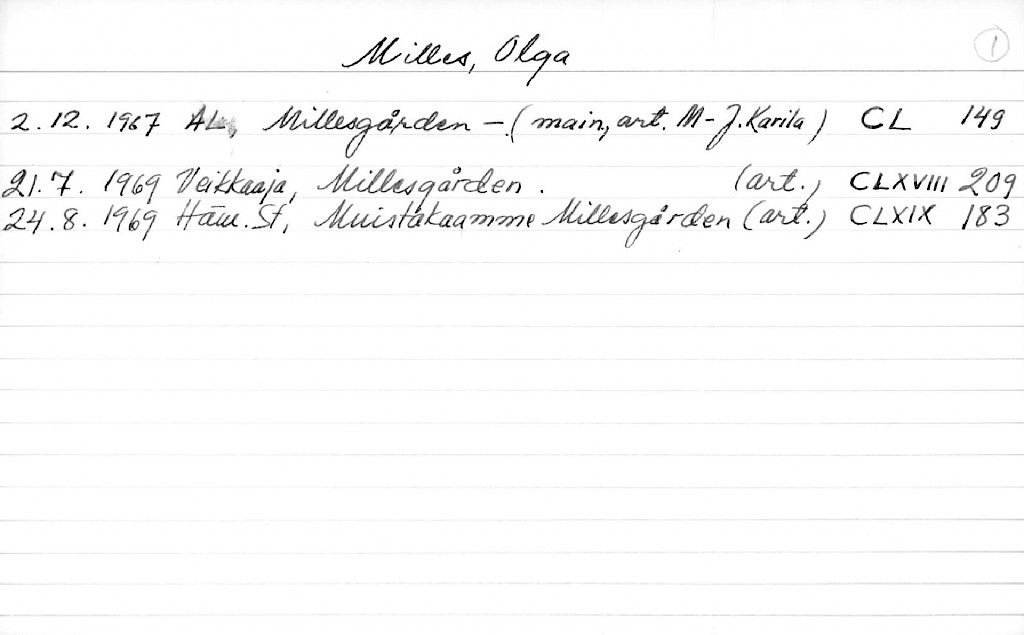 Milles, Olga 1
2.12. 1967 AL, Millesgården – (main, art. M-J. Karila) CL 149
21.7. 1969 Veikkaaja, Millesgården. (art.) CLXVIII 209
24.8. 1969 Häm. St, Muistakaamme Millesgården (art.) CLXIX 183